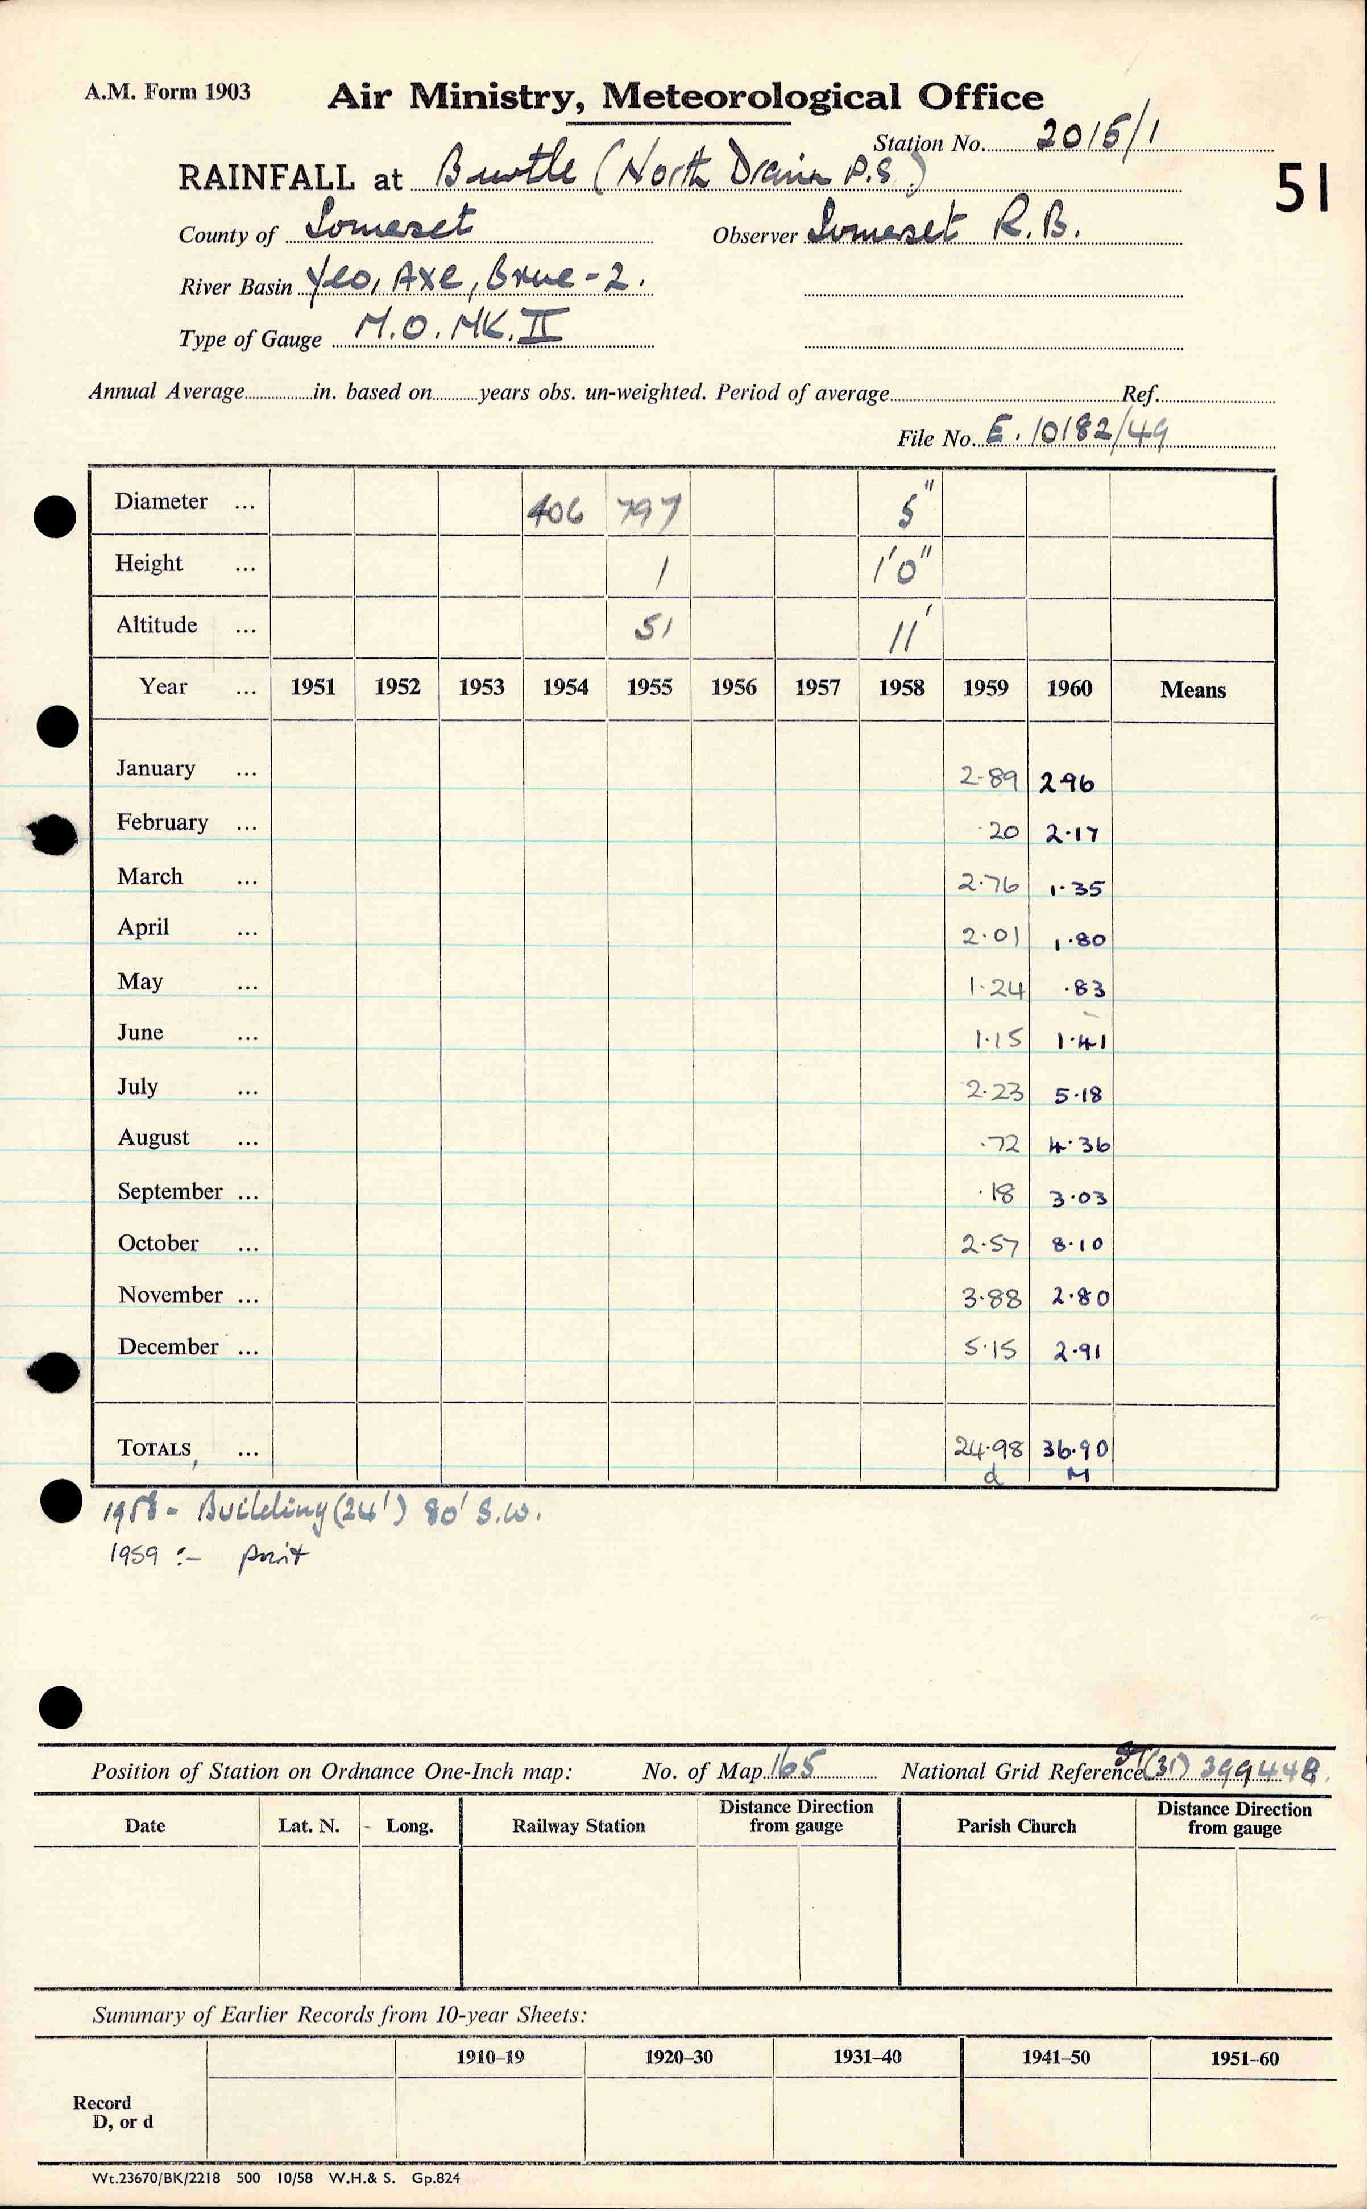 A.M. Form 1903
Air Ministry, Meteorological Office
Station No. 2015/1
RAINFALL at Burtle (North Drain P.S.)
51
County of Somerset Observer Somerset R.B.
River Basin Yeo, Axe, Brue-2.
Type of Gauge M.O. MK. II
Annual Average in. based on years obs. un-weighted. Period of average Ref.
File No. E. 10182/49
Diameter ... 406 797 5"
Height ... 1 1'0"
Altitude ... 51 11'
Year ... 1951 1952 1953 1954 1955 1956 1957 1958 1959 1960 Means
January ... 2.89 2.96
February ... .20 2.17
March ... 2.76 1.35
April ... 2.01 1.80
May ... 1.24 .83
June ... 1.15 1.41
July ... 2.23 5.18
August ... .72 4.36
September ... .18 3.03
October ... 2.57 8.10
November ... 3.88 2.80
December ... 5.15 2.91
TOTALS ... 24.98 36.90
d M
1958 - Building (24') 80' S.W.
1959 :-
Position of Station on Ordnance One-Inch map: No. of Map 165 National Grid Reference ST (31) 399448
Date Lat. N. - Long. Railway Station Distance Direction from gauge Parish Church Distance Direction from gauge
Summary of Earlier Records from 10-year Sheets:
1910-19 1920-30 1931-40 1941-50 1951-60
Record
D, or d
Wt.23670/BK/2218 500 10/58 W.H.& S. Gp.824